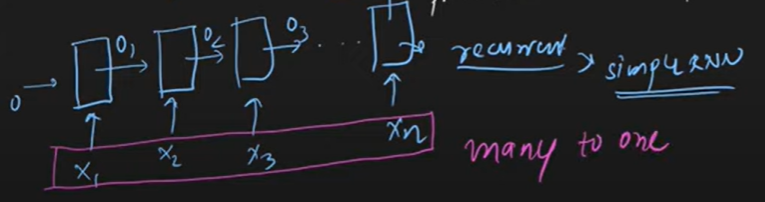 O₁ O₂ O₃ . . .
recurrent > simple RNN
0
X₁ X₂ X₃ Xn
many to one